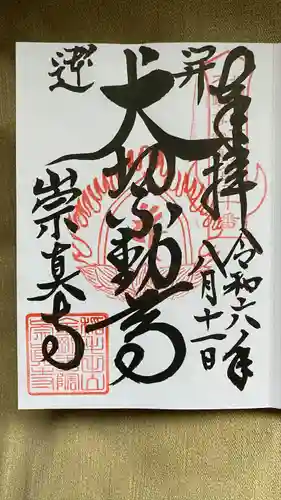 奉拝
令和六年
八月十一日
開運
大切不動尊
崇真寺